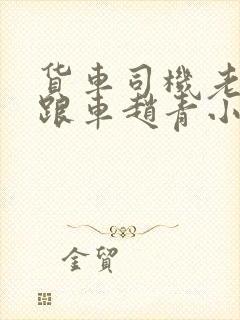 货车司機老
跟車趙青小
金貿